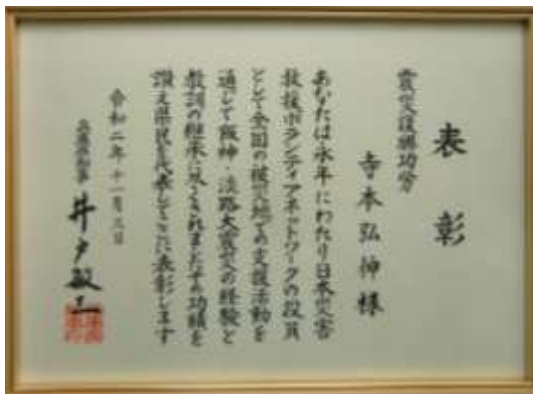 表彰
震災復興功労
寺本弘伸様
あなたは永年にわたり日本災害
救援ボランティアネットワークの役員
として全国の被災地での支援活動を
通じて阪神・淡路大震災の経験と
教訓の継承に尽くされましたその功績を
讃え県民を代表してここに表彰します
令和二年十一月三日
兵庫県知事 井戸敏三